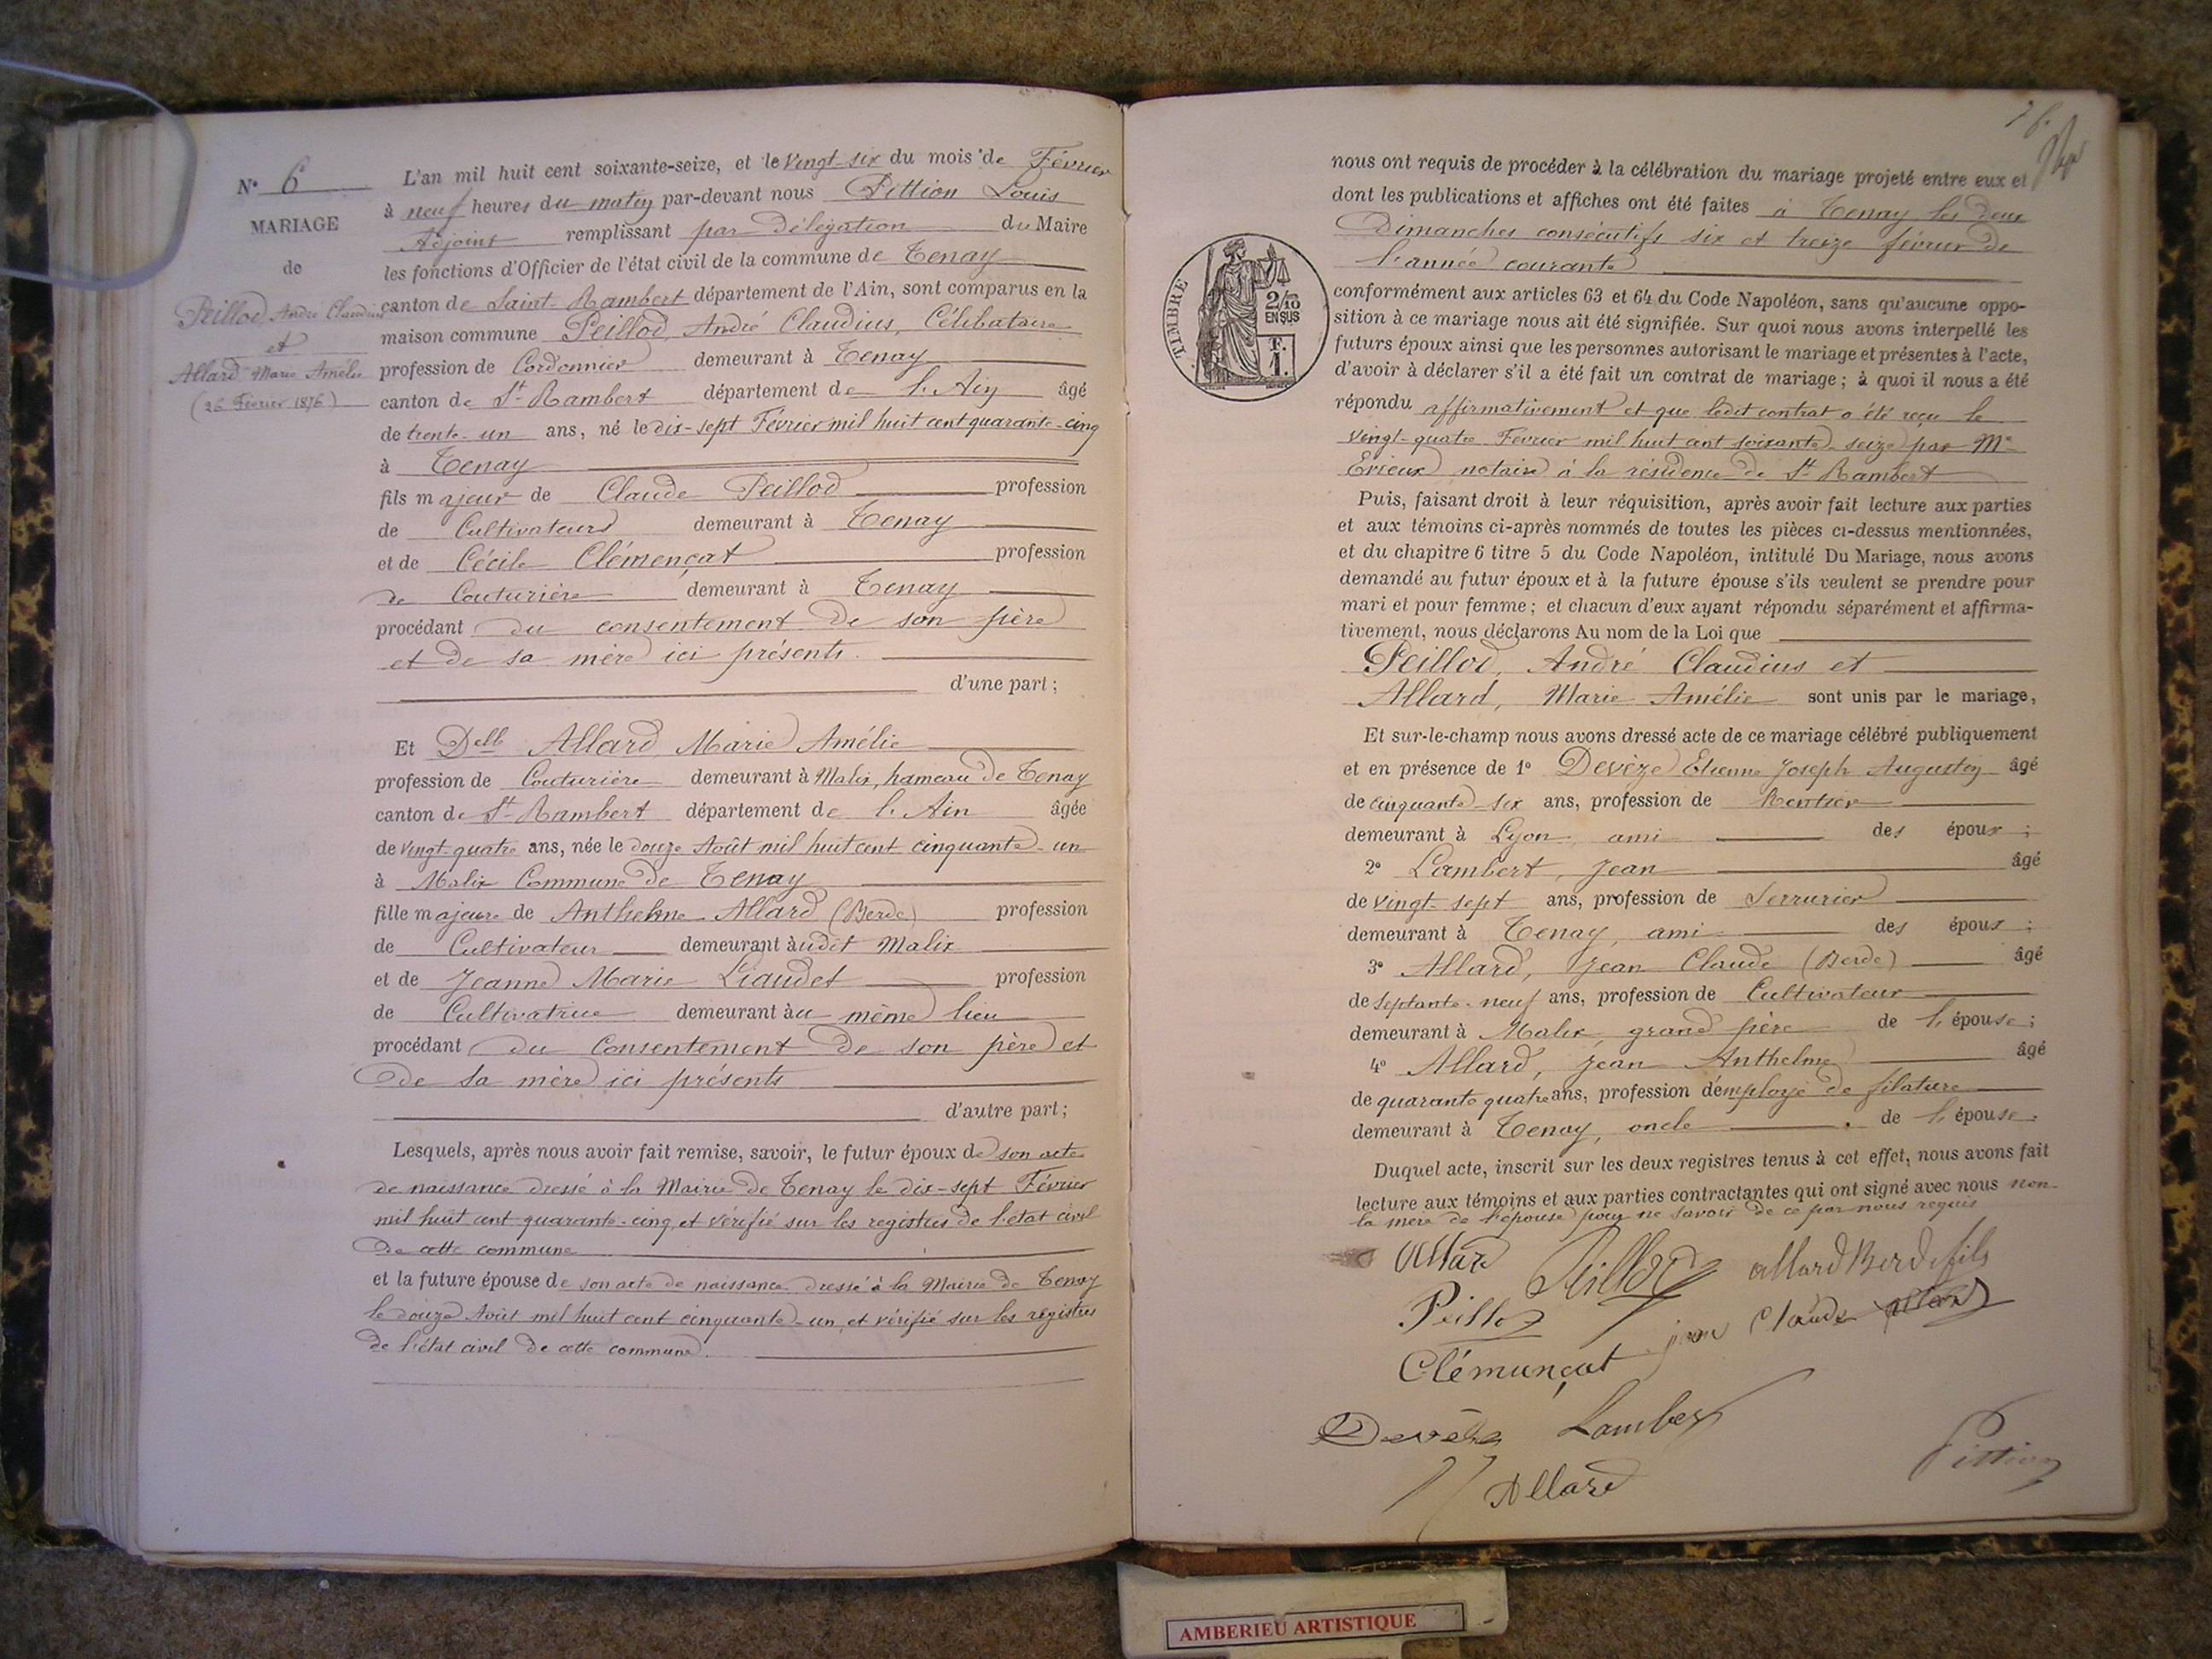 N° 6
MARIAGE
de
Peillod, André Claudius
et
Allard Marie Amélie
(26 Février 1876)
L'an mil huit cent soixante-seize, et le vingt-six du mois de Février
à neuf heures du matin par-devant nous Pittion Louis
Adjoint remplissant par Délégation du Maire
les fonctions d'Officier de l'état civil de la commune de Tenay
canton de Saint-Rambert département de l'Ain, sont comparus en la
maison commune Peillod, André Claudius, Célibataire
profession de Cordonnier demeurant à Tenay
canton de St Rambert département de l'Ain âgé
de trente-un ans, né le dix-sept Février mil huit cent quarante-cinq
à Tenay
fils majeur de Claude Peillod profession
de Cultivateur demeurant à Tenay
et de Cécile Clémençat profession
de Couturière demeurant à Tenay
procédant du consentement de son père
et de sa mère ici présents.
d'une part;
Et Delle Allard Marie Amélie
profession de Couturière demeurant à Malix, hameau de Tenay
canton de St Rambert département de l'Ain âgée
de vingt-quatre ans, née le douze Août mil huit cent cinquante-un
à Malix Commune de Tenay
fille majeure de Anthelme Allard (Berde) profession
de Cultivateur demeurant audit Malix
et de Jeanne Marie Liaudet profession
de Cultivatrice demeurant au même lieu
procédant du Consentement de son père et
de sa mère ici présents
d'autre part;
Lesquels, après nous avoir fait remise, savoir, le futur époux de son acte
de naissance dressé à la Mairie de Tenay le dix-sept Février
mil huit cent quarante-cinq, et vérifié sur les registres de l'état civil
de cette commune
et la future épouse de son acte de naissance dressé à la Mairie de Tenay
le douze Août mil huit cent cinquante-un, et vérifié sur les registres
de l'état civil de cette commune.
nous ont requis de procéder à la célébration du mariage projeté entre eux et
dont les publications et affiches ont été faites à Tenay les deux
Dimanches consécutifs six et treize février de
l'année courante
TIMBRE
2/10
EN SUS
F.
1.
conformément aux articles 63 et 64 du Code Napoléon, sans qu'aucune oppo-
sition à ce mariage nous ait été signifiée. Sur quoi nous avons interpellé les
futurs époux ainsi que les personnes autorisant le mariage et présentes à l'acte,
d'avoir à déclarer s'il a été fait un contrat de mariage; à quoi il nous a été
répondu affirmativement et que ledit contrat a été reçu le
vingt-quatre Février mil huit cent soixante-seize par Me
Erieux notaire à la résidence de St Rambert
Puis, faisant droit à leur réquisition, après avoir fait lecture aux parties
et aux témoins ci-après nommés de toutes les pièces ci-dessus mentionnées,
et du chapitre 6 titre 5 du Code Napoléon, intitulé Du Mariage, nous avons
demandé au futur époux et à la future épouse s'ils veulent se prendre pour
mari et pour femme; et chacun d'eux ayant répondu séparément et affirma-
tivement, nous déclarons Au nom de la Loi que
Peillod, André Claudius et
Allard, Marie Amélie sont unis par le mariage,
Et sur-le-champ nous avons dressé acte de ce mariage célébré publiquement
et en présence de 1° Devèze Etienne Joseph Augustin âgé
de cinquante-six ans, profession de Rentier
demeurant à Lyon, ami des époux;
2° Lambert, Jean âgé
de vingt-sept ans, profession de Serrurier
demeurant à Tenay, ami des époux;
3° Allard, Jean Claude (Berde) âgé
de septante-neuf ans, profession de Cultivateur
demeurant à Malix, grand père de l'épouse;
4° Allard, Jean Anthelme âgé
de quarante quatre ans, profession d'employé de filature
demeurant à Tenay, oncle de l'épouse.
Duquel acte, inscrit sur les deux registres tenus à cet effet, nous avons fait
lecture aux témoins et aux parties contractantes qui ont signé avec nous non
la mère de l'épouse pour ne savoir de ce par nous requis
Allard Peillod Allard Berde fils
Peillod jean Claude allard
Clémençat
Devèze Lambert
Allard Pittion
AMBERIEU ARTISTIQUE